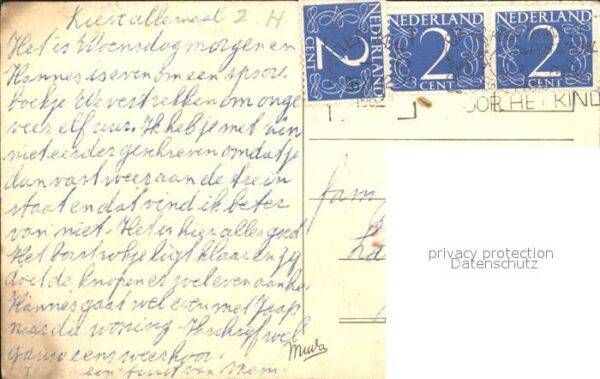 Lieve allemaal 2 H
Het is Woensdag morgen en
Hannes is even om een spoor
boekje We vertrekken om onge
veer elf uur. Ik heb je met
niet eerder geschreven omdat je
dan vast weer aan de trein
staat en dat vind ik beter
van niet. Het is hier alles goed
Het borstrokje ligt klaar en jij
doet de knopen es wel even aan he
Hannes gaat wel even met Jaap
naar de woning. Ik schrijf wel
gauw eens weer hoor.
een van Mem.
NEDERLAND
2
CENT
NEDERLAND
2
CENT
NEDERLAND
2
CENT
VOOR HET KIND
fam
privacy protection
Datenschutz